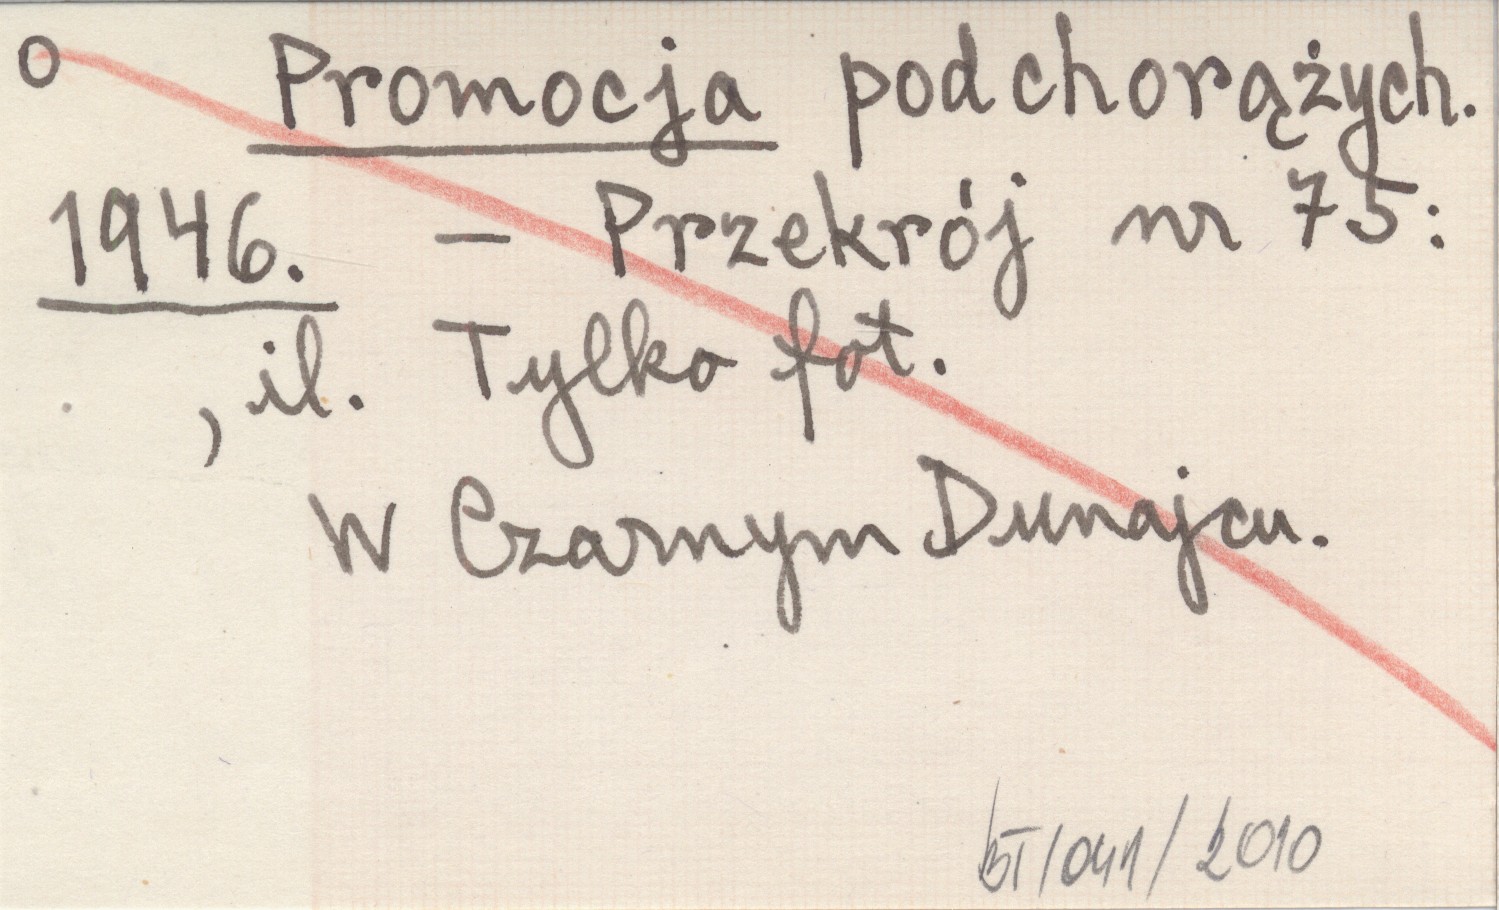 o Promocja podchorążych.
1946. — Przekrój nr 75:
, il. Tylko fot.
W Czarnym Dunajcu.
BI/041/2010